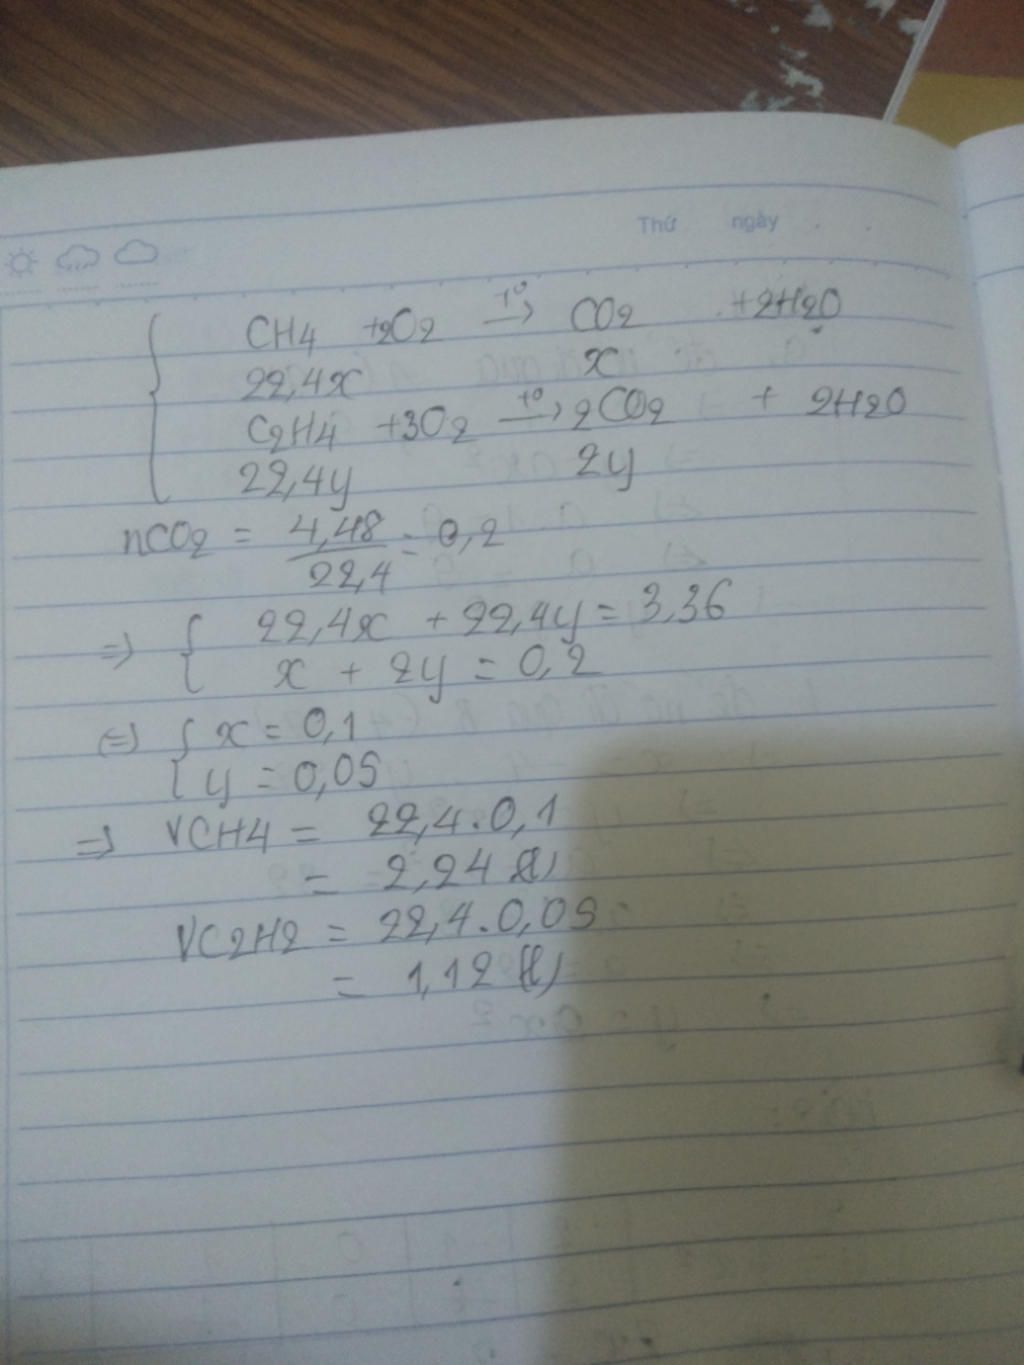 Thứ ngày
CH4 +2O2 t°→ CO2 +2H2O
22,4x x
C2H4 +3O2 t°→ 2CO2 + 2H2O
22,4y 2y
nCO2 = 4,48/22,4 = 0,2
=> { 22,4x + 22,4y = 3,36
x + 2y = 0,2
<=> { x = 0,1
{ y = 0,05
=> VCH4 = 22,4.0,1
= 2,24 (l)
VC2H2 = 22,4.0,05
= 1,12 (l)